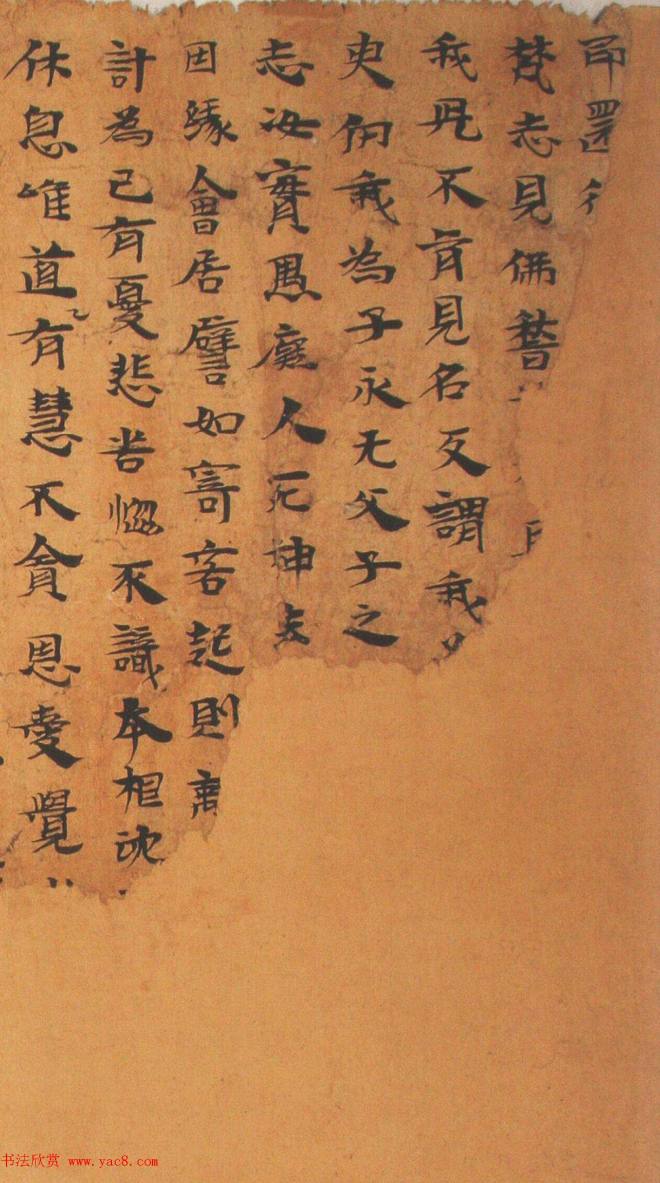 即還彳
梵志見佛稽
我児不肯見名反謂我
叟何我為子永无父子之
志汝實愚癡人死神去
因緣會居譬如寄客起則離
計為己有憂悲苦惱不識本相沈
休息唯道有慧不貪恩愛覺
书法欣赏 www.yac8.com